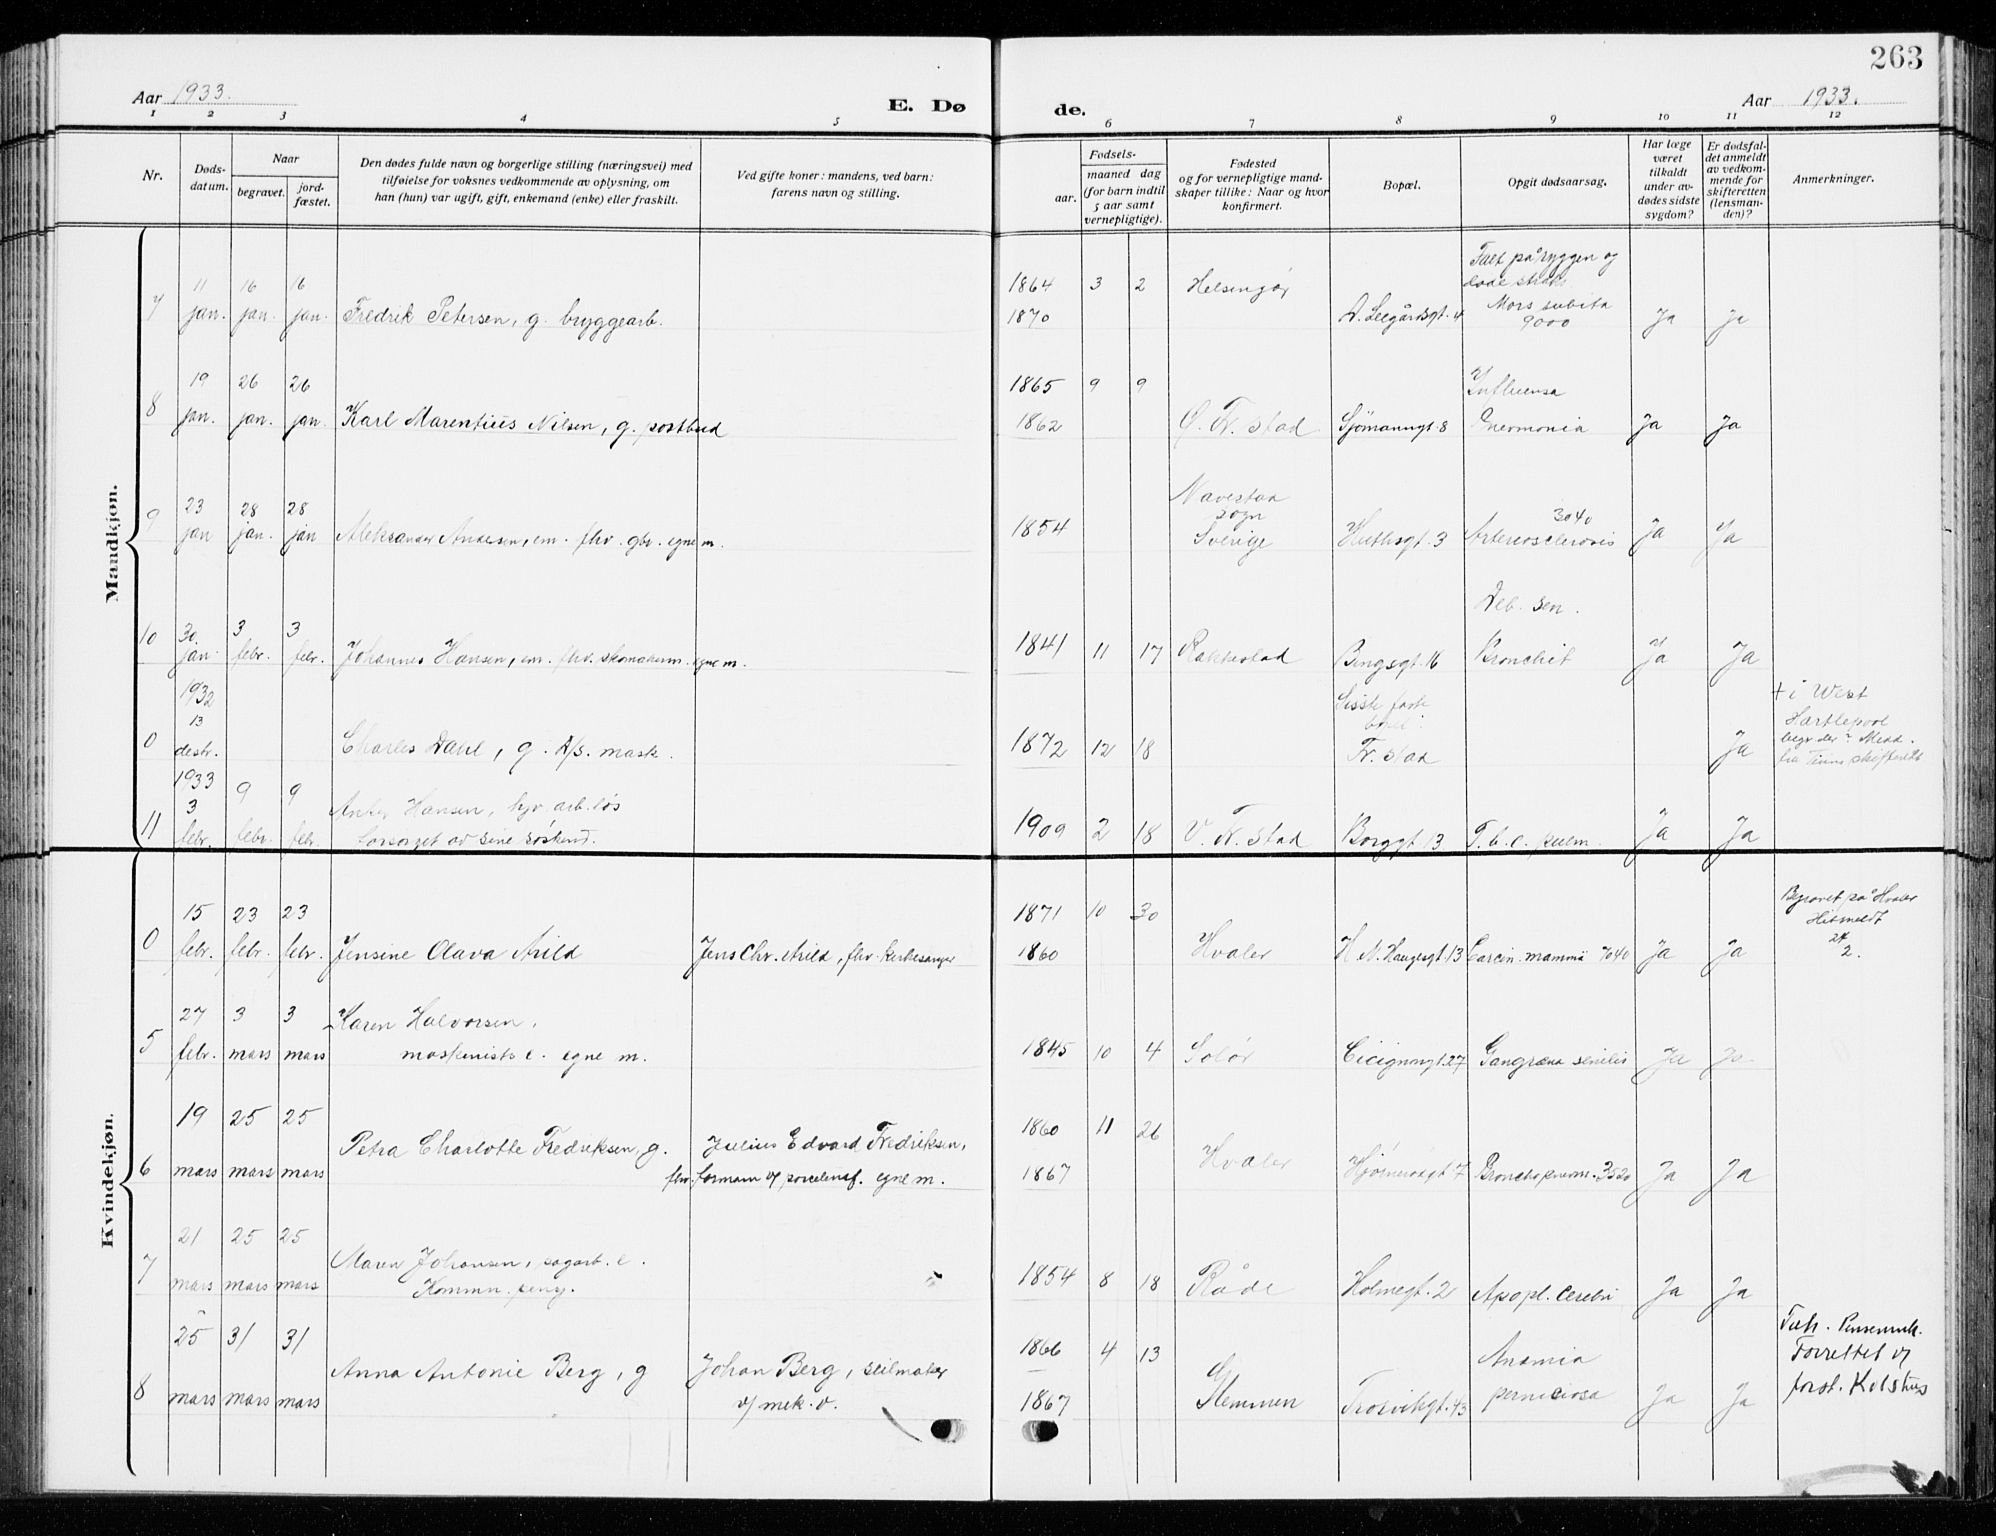 263
Aar 1933.
E. Dø de.
Aar 1933.
1 2 3 4 5 6 7 8 9 10 11 12
Nr.
Døds-
datum.
Naar
begravet.
jord-
fæstet.
Den dødes fulde navn og borgerlige stilling (næringsvei) med
tilføielse for voksnes vedkommende av oplysning, om
han (hun) var ugift, gift, enkemand (enke) eller fraskilt.
Ved gifte koner: mandens, ved barn:
farens navn og stilling.
Fødsels-
aar.
maaned dag
(for barn indtil
5 aar samt
vernepligtige).
Fødested
og for vernepligtige mand-
skaper tillike: Naar og hvor
konfirmert.
Bopæl.
Opgit dødsaarsag.
Har læge
været
tilkaldt
under av-
dødes sidste
sygdom?
Er dødsfal-
det anmeldt
av vedkom-
mende for
skifteretten
(lensman-
den)?
Anmerkninger.
Mandkjøn.
7
11 16 16
jan. jan. jan.
Fredrik Petersen, g. bryggearb.
1864 3 2
1870
Helsingør
D. Leegårdsgt. 4
Falt på ryggen og
døde straks
Mors subita
9000
Ja Ja
8
19 26 26
jan. jan. jan.
Karl Marentius Nilsen, g. postbud
1865 9 9
1862
Ø. Fr. stad
Sjømannsgt. 8
Influensa
Pneumonia
Ja Ja
9
23 28 28
jan jan. jan
Aleksander Andersen, em. fhv. gbr. egne m.
1854
Navestad
sogn
Sverige
Huthsgt. 3
3040
Arteriosclerosis
Ja Ja
10
30. 3 3
jan. febr. febr.
Johannes Hansen, em. fhv. skomakerm. egne m.
1841 11 17
Rakkestad
Bingsgt. 16
Deb. sen.
Bronchit
Ja Ja
0
1932
13
desbr.
Charles Dahl, g. D/S. mask.
1872 12 18
Siste faste
bopel:
Fr. stad
Ja
+ i West
Hartlepool
begr. der. Medd.
fra skifterett
11
1933
3 9 9
febr. febr. febr.
Anker Hansen, hjv. arb. løs
forsørget av sine søskend.
1909 2 18
V. Fr. stad
Borggt. 13
T. b. c. pulm.
Ja Ja
Kvindekjøn.
0
15 23 23
febr. febr. febr.
Jensine Olava Arild
Jens Chr. Arild, fhv. kirkesanger
1871 10 30
1860
Hvaler
H. N. Haugesgt. 13
Carcin. mammä 7040
Ja Ja
Begravet på Hvaler
Hitmeldt
24
2.
5
27 3 3
febr. mars mars
Karen Halvorsen,
maskinists e. egne m.
1845 10 4
Solør
Cicignongt. 27
Gangræna senilis
Ja Ja
6
19 25 25
mars mars mars
Petra Charlotte Fredriksen, g.
Julius Edvard Fredriksen,
fhv. formann v/ porcelensf. egne m.
1860 11 26
1867
Hvaler
Hjørnerødgt 7
Bronchopneum. 3520
Ja Ja
7
21 25 25
mars mars mars
Maren Johansen, sagarb. e.
Kommun. peng.
1854 8 18
Råde
Holmegt. 2
Apopl. cerebri
Ja Ja
8
25 31 31
mars mars mars
Anna Antonie Berg, g
Johan Berg, seilmaker
v/ mek. v.
1866 4 13
1867
Glemmen
Trosvikgt. 43
Anæmia
perniciosa
Ja Ja
Forrettet v/
forst. Kolstus